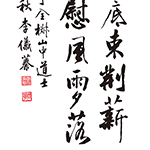 底束荆薪
慰風雨夕落
全椒山中道士
秋李儀